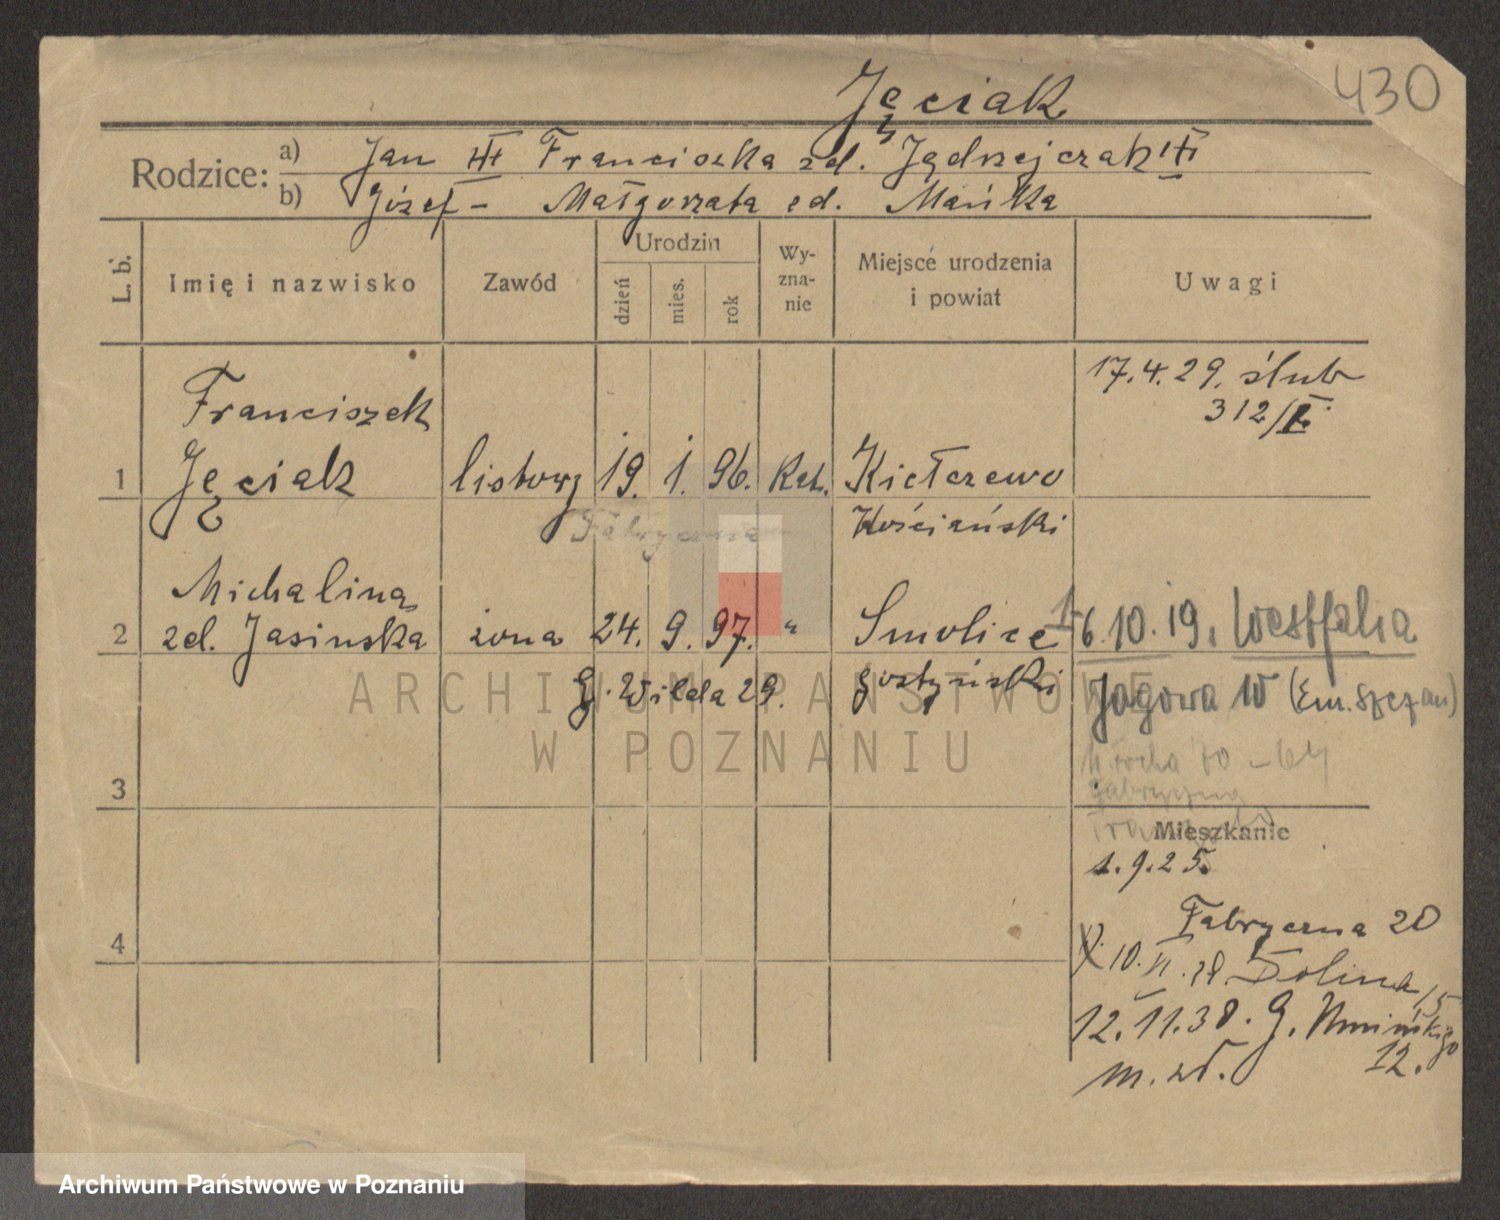 430
Jęciak
Rodzice:
a) Jan Franciszka zd. Jądrzejczak
b) Józef - Małgorzata zd. Mańka
L. b.
Imię i nazwisko
Zawód
Urodzin
dzień
mies.
rok
Wy-
zna-
nie
Miejsce urodzenia
i powiat
Uwagi
17.4.29. ślub
312/I.
Franciszek
1 Jęciak listowy 19. 1. 96. Kat. Kiełczewo
Kościański
Fabryczna
Michalina
2 zd. Jasinska żona 24. 9. 97. " Smolice 6.10.19. Westfalia
G. Wilda 29. gostyński Jagowa 10 (Em. Szczan)
3
Mieszkanie
1.9.25.
Fabryczna 20
4
10.VI.28 Dolina 15
12.11.38. G. Umińskiego
m. 12.
ARCHIWUM PAŃSTWOWE
W POZNANIU
Archiwum Państwowe w Poznaniu